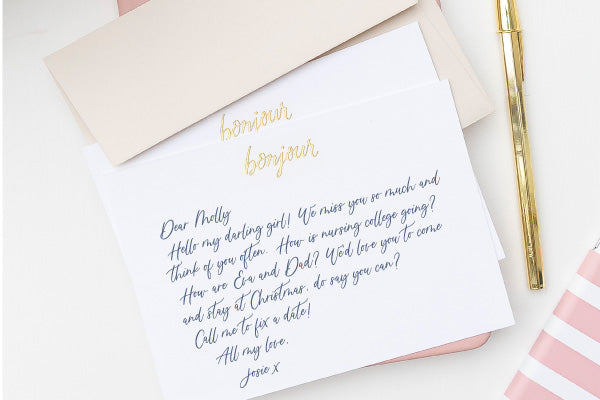 bonjour
bonjour
Dear Molly
Hello my darling girl! We miss you so much and
think of you often. How is nursing college going?
How are Eva and Dad? We'd love you to come
and stay at Christmas, do say you can?
Call me to fix a date!
All my love,
Josie x